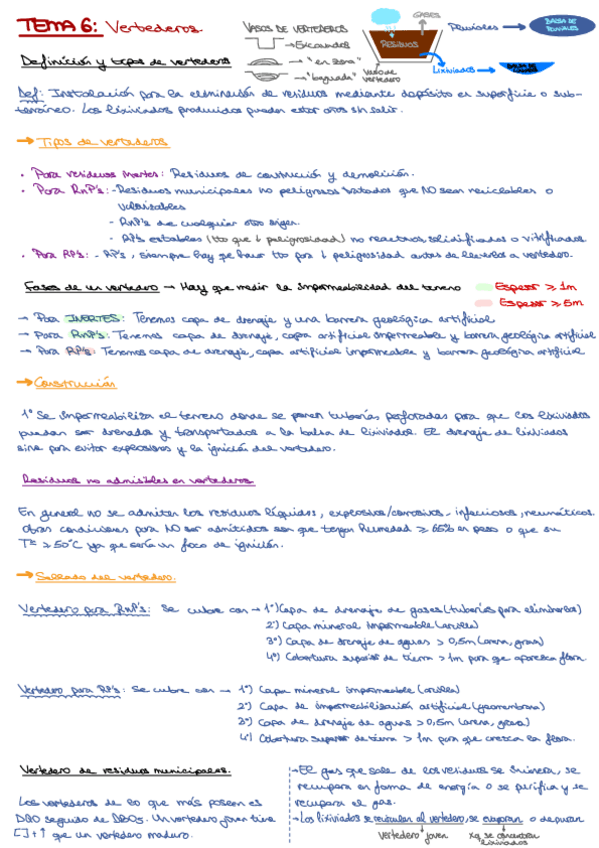 TEMA 6: Vertederos.
VASOS DE VERTEDEROS
→ Excavados
→ "en zona"
→ "baguada"
GASES
RESIDUOS
Vaso de vertedero
Pluviales → BALSA DE PLUVIALES
Lixiviados → BALSA DE
Definición y tipos de vertederos
Def: Instalación para la eliminación de residuos mediante depósito en superficie o sub-
terráneo. Los lixiviados producidos pueden estar años sin salir.
→ Tipos de vertederos
• Para residuos inertes: Residuos de construcción y demolición.
• Para RnP's: - Residuos municipales no peligrosos tratados que NO sean reciclables o
valorizables
- RnP's de cualquier otro origen.
- RP's estables (tto que ↓ peligrosidad) no reactivos solidificados o vitrificados.
• Para RP's: - RP's, siempre hay que hacer tto para ↓ peligrosidad antes de llevarlos a vertedero.
Fases de un vertedero → Hay que medir la impermeabilidad del terreno
Espesor ≥ 1m
Espesor ≥ 5m
→ Para INERTES: Tenemos capa de drenaje y una barrera geológica artificial
→ Para RnP's: Tenemos capa de drenaje, capa artificial impermeable y barrera geológica artificial
→ Para RP's: Tenemos capa de drenaje, capa artificial impermeable y barrera geológica artificial
→ Construcción
1º Se impermeabiliza el terreno donde se ponen tuberías perforadas para que los lixiviados
puedan ser drenados y transportados a la balsa de lixiviados. El drenaje de lixiviados
sirve para evitar explosiones y la ignición del vertedero.
Residuos no admisibles en vertederos
En general no se admiten los residuos líquidos, explosivos/corrosivos, infecciosos, neumáticos.
Otras condiciones para NO ser admitidos son que tengan humedad ≥ 65% en peso o que su
Tª ≥ 50ºC ya que sería un foco de ignición.
→ Sellado del vertedero.
Vertedero para RnP's: Se cubre con → 1º) Capa de drenaje de gases (tuberías para eliminarlos)
2º) Capa mineral impermeable (arcilla)
3º) Capa de drenaje de aguas > 0,5m (arena, grava)
4º) Cobertura superior de tierra > 1m para que aparezca flora.
Vertedero para RP's: Se cubre con → 1º) Capa mineral impermeable (arcilla)
2º) Capa de impermeabilización artificial (geomembrana)
3º) Capa de drenaje de aguas > 0,5m (arena, grava)
4º) Cobertura superior de tierra > 1m para que crezca la flora.
Vertedero de residuos municipales.
Los vertederos de lo que más poseen es
DQO seguido de DBO5. Un vertedero joven tiene
[ ] + ↑ que un vertedero maduro.
→ El gas que sale de los residuos se quema, se
recupera en forma de energía o se purifica y se
recupera el gas.
→ Los lixiviados se recirculan al vertedero, se evaporan o depuran
vertedero joven
xq se concentran lixiviados